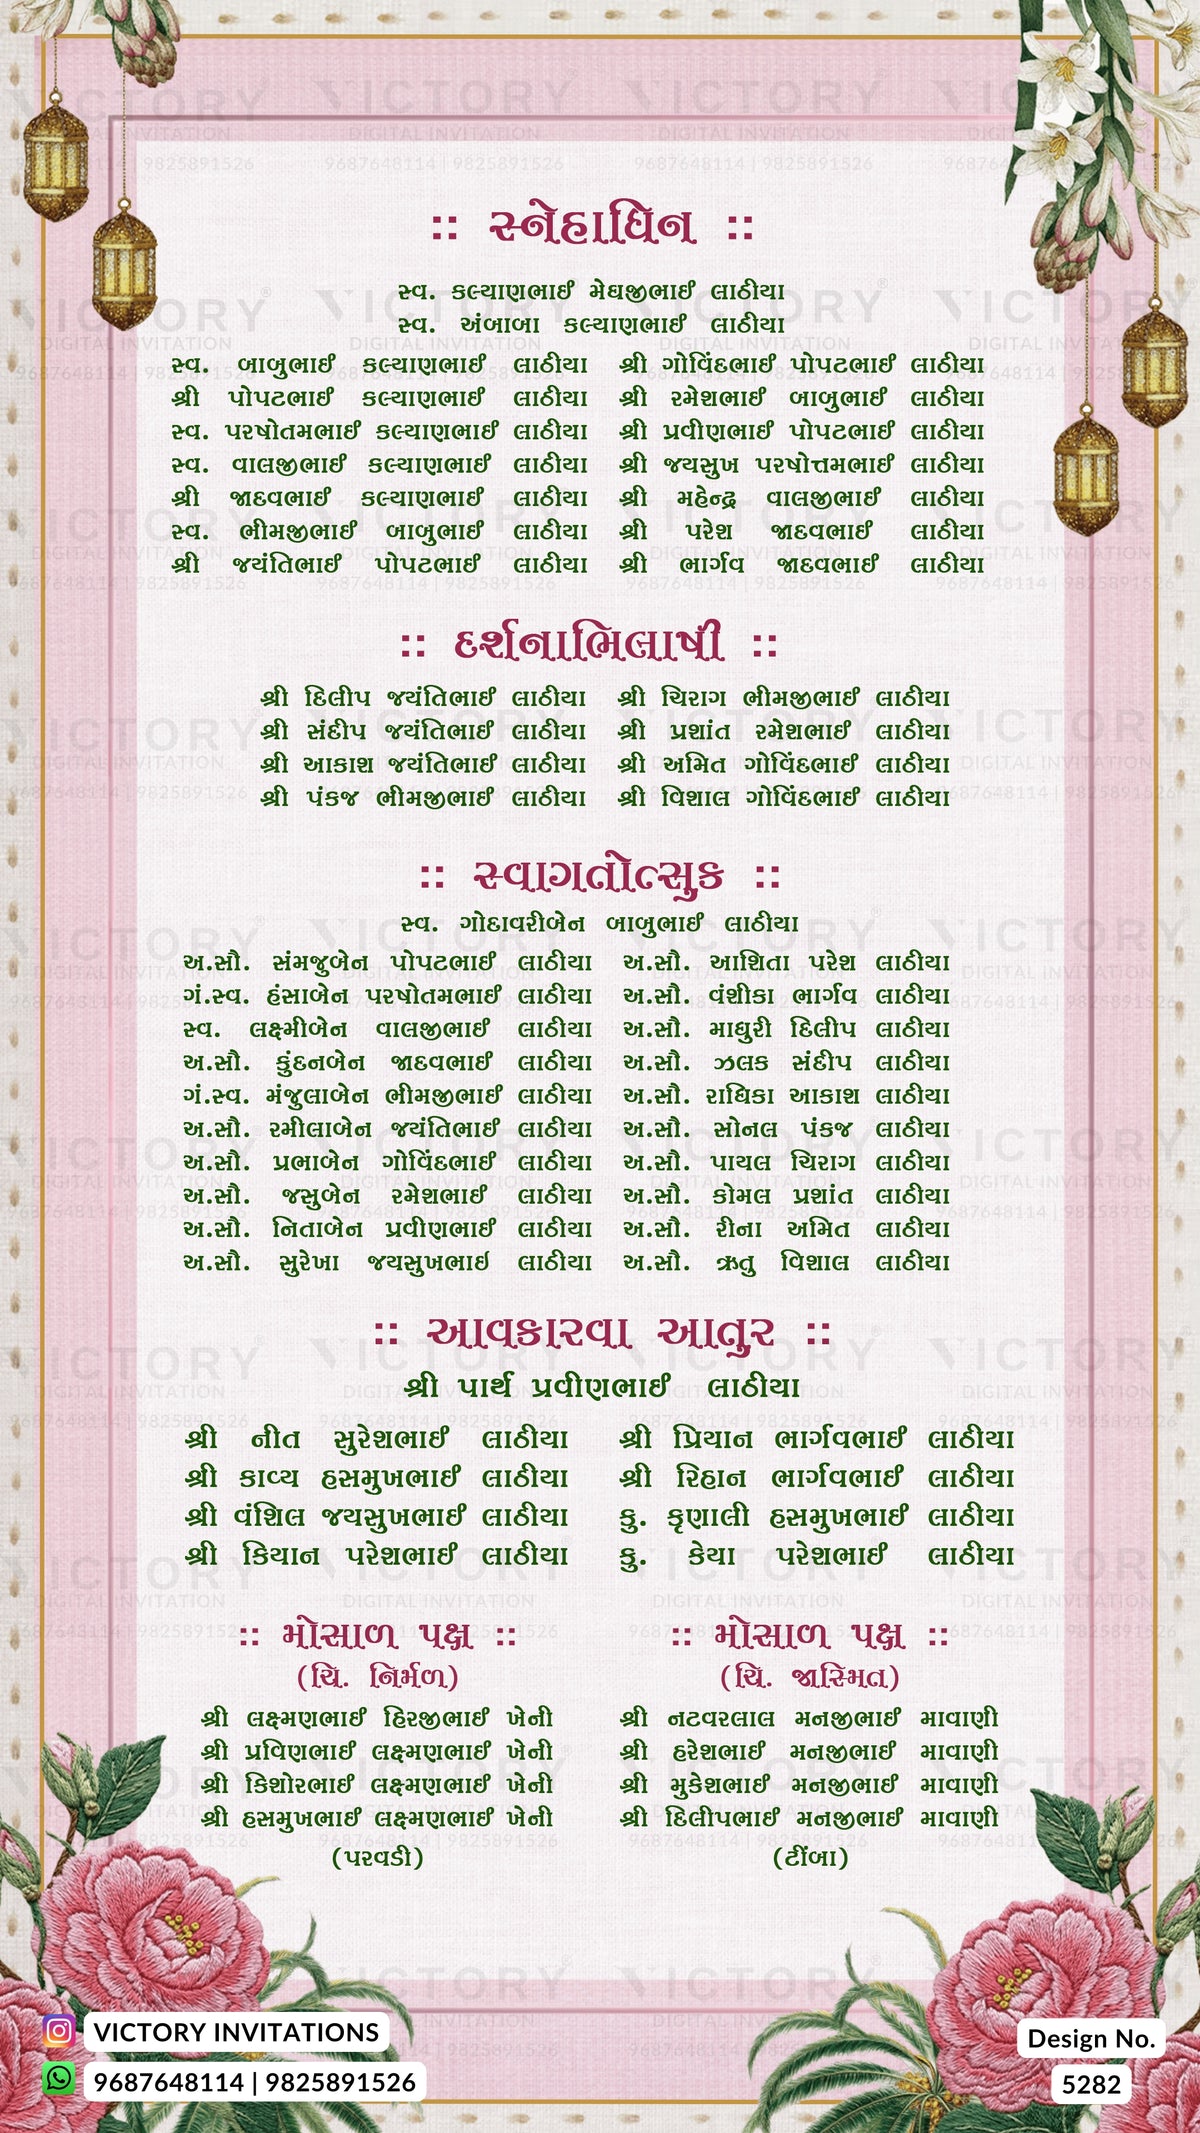 :: સ્નેહાધિન ::
સ્વ. કલ્યાણભાઈ મેઘજીભાઈ લાઠીયા
સ્વ. અંબાબા કલ્યાણભાઈ લાઠીયા
સ્વ. બાબુભાઈ કલ્યાણભાઈ લાઠીયા
શ્રી પોપટભાઈ કલ્યાણભાઈ લાઠીયા
સ્વ. પરષોતમભાઈ કલ્યાણભાઈ લાઠીયા
સ્વ. વાલજીભાઈ કલ્યાણભાઈ લાઠીયા
શ્રી જાદવભાઈ કલ્યાણભાઈ લાઠીયા
સ્વ. ભીમજીભાઈ બાબુભાઈ લાઠીયા
શ્રી જયંતિભાઈ પોપટભાઈ લાઠીયા
શ્રી ગોવિંદભાઈ પોપટભાઈ લાઠીયા
શ્રી રમેશભાઈ બાબુભાઈ લાઠીયા
શ્રી પ્રવીણભાઈ પોપટભાઈ લાઠીયા
શ્રી જયસુખ પરષોત્તમભાઈ લાઠીયા
શ્રી મહેન્દ્ર વાલજીભાઈ લાઠીયા
શ્રી પરેશ જાદવભાઈ લાઠીયા
શ્રી ભાર્ગવ જાદવભાઈ લાઠીયા
:: દર્શનાભિલાષી ::
શ્રી દિલીપ જયંતિભાઈ લાઠીયા
શ્રી સંદીપ જયંતિભાઈ લાઠીયા
શ્રી આકાશ જયંતિભાઈ લાઠીયા
શ્રી પંકજ ભીમજીભાઈ લાઠીયા
શ્રી ચિરાગ ભીમજીભાઈ લાઠીયા
શ્રી પ્રશાંત રમેશભાઈ લાઠીયા
શ્રી અમિત ગોવિંદભાઈ લાઠીયા
શ્રી વિશાલ ગોવિંદભાઈ લાઠીયા
:: સ્વાગતોત્સુક ::
સ્વ. ગોદાવરીબેન બાબુભાઈ લાઠીયા
અ.સૌ. સંમજુબેન પોપટભાઈ લાઠીયા
ગં.સ્વ. હંસાબેન પરષોતમભાઈ લાઠીયા
સ્વ. લક્ષ્મીબેન વાલજીભાઈ લાઠીયા
અ.સૌ. કુંદનબેન જાદવભાઈ લાઠીયા
ગં.સ્વ. મંજુલાબેન ભીમજીભાઈ લાઠીયા
અ.સૌ. રમીલાબેન જયંતિભાઈ લાઠીયા
અ.સૌ. પ્રભાબેન ગોવિંદભાઈ લાઠીયા
અ.સૌ. જસુબેન રમેશભાઈ લાઠીયા
અ.સૌ. નિતાબેન પ્રવીણભાઈ લાઠીયા
અ.સૌ. સુરેખા જયસુખભાઇ લાઠીયા
અ.સૌ. આશિતા પરેશ લાઠીયા
અ.સૌ. વંશીકા ભાર્ગવ લાઠીયા
અ.સૌ. માધુરી દિલીપ લાઠીયા
અ.સૌ. ઝલક સંદીપ લાઠીયા
અ.સૌ. રાધિકા આકાશ લાઠીયા
અ.સૌ. સોનલ પંકજ લાઠીયા
અ.સૌ. પાયલ ચિરાગ લાઠીયા
અ.સૌ. કોમલ પ્રશાંત લાઠીયા
અ.સૌ. રીના અમિત લાઠીયા
અ.સૌ. ઋતુ વિશાલ લાઠીયા
:: આવકારવા આતુર ::
શ્રી પાર્થ પ્રવીણભાઈ લાઠીયા
શ્રી નીત સુરેશભાઈ લાઠીયા
શ્રી કાવ્ય હસમુખભાઈ લાઠીયા
શ્રી વંશિલ જયસુખભાઈ લાઠીયા
શ્રી કિયાન પરેશભાઈ લાઠીયા
શ્રી પ્રિયાન ભાર્ગવભાઈ લાઠીયા
શ્રી રિહાન ભાર્ગવભાઈ લાઠીયા
કુ. કૃણાલી હસમુખભાઈ લાઠીયા
કુ. કેયા પરેશભાઈ લાઠીયા
:: મોસાળ પક્ષ ::
(ચિ. નિર્મળ)
શ્રી લક્ષ્મણભાઈ હિરજીભાઈ ખેની
શ્રી પ્રવિણભાઈ લક્ષ્મણભાઈ ખેની
શ્રી કિશોરભાઈ લક્ષ્મણભાઈ ખેની
શ્રી હસમુખભાઈ લક્ષ્મણભાઈ ખેની
(પરવડી)
:: મોસાળ પક્ષ ::
(ચિ. જાસ્મિત)
શ્રી નટવરલાલ મનજીભાઈ માવાણી
શ્રી હરેશભાઈ મનજીભાઈ માવાણી
શ્રી મુકેશભાઈ મનજીભાઈ માવાણી
શ્રી દિલીપભાઈ મનજીભાઈ માવાણી
(ટીંબા)
VICTORY INVITATIONS
9687648114 | 9825891526
Design No.
5282
VICTORY
DIGITAL INVITATION
9687648114 | 9825891526